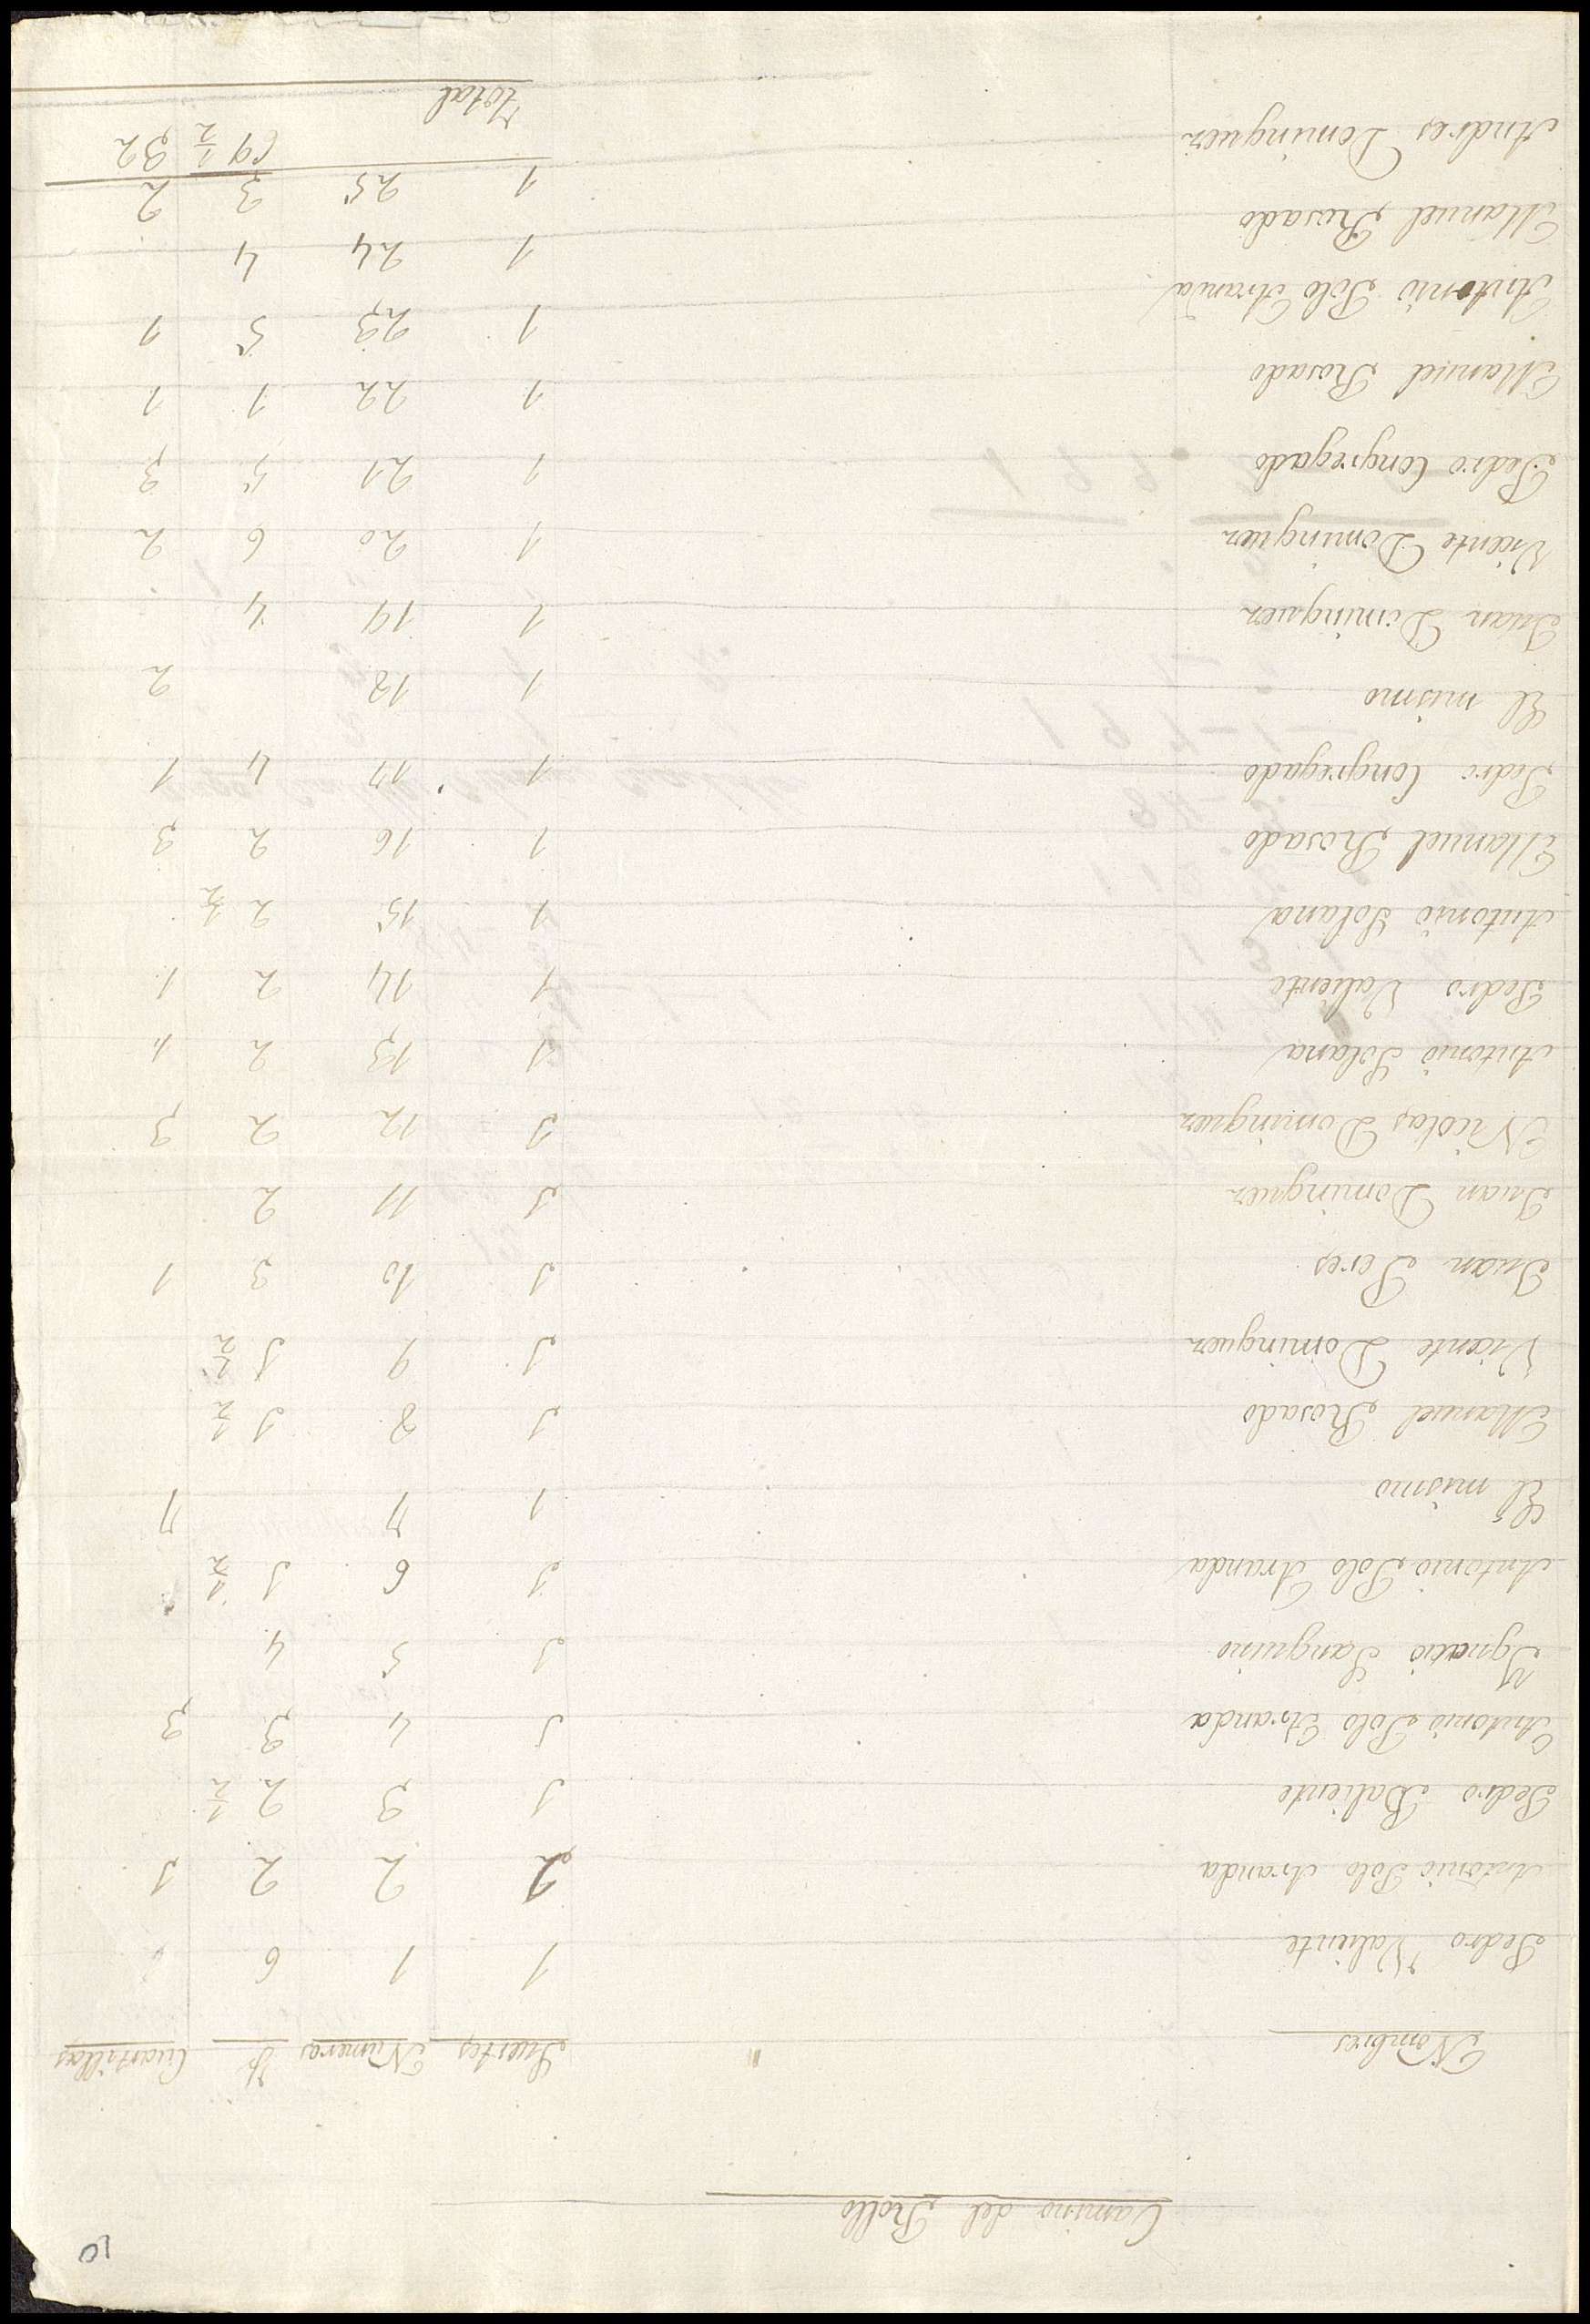 10
Camino del Rollo
Nombres Suertes Números Cuartillas
Pedro Valiente 1 1 6
Antonio Polo Aranda 1 2 2 1
Pedro Baliente 1 3 2 1/2
Antonio Polo Aranda 1 4 3 3
Ygnacio Sanguino 1 5 4
Antonio Polo Aranda 1 6 1 1/2
El mismo 1 7 7
Manuel Rosado 1 8 1 1/2
Vicente Dominguez 1 9 1 1/2
Juan Peres 1 10 3 1
Juan Dominguez 1 11 2
Nicolas Dominguez 1 12 2 3
Antonio Solana 1 13 2 1
Pedro Valiente 1 14 2 1
Antonio Solana 1 15 2 1/2
Manuel Rosado 1 16 2 3
Pedro Congregado 1 17 4 1
El mismo 1 18 2
Juan Dominguez 1 19 4
Vicente Dominguez 1 20 6 2
Pedro Congregado 1 21 5 3
Manuel Rosado 1 22 1 1
Antonio Polo Aranda 1 23 5 1
Manuel Rosado 1 24 4
Andres Dominguez 1 25 3 2
Total 69 1/2 32